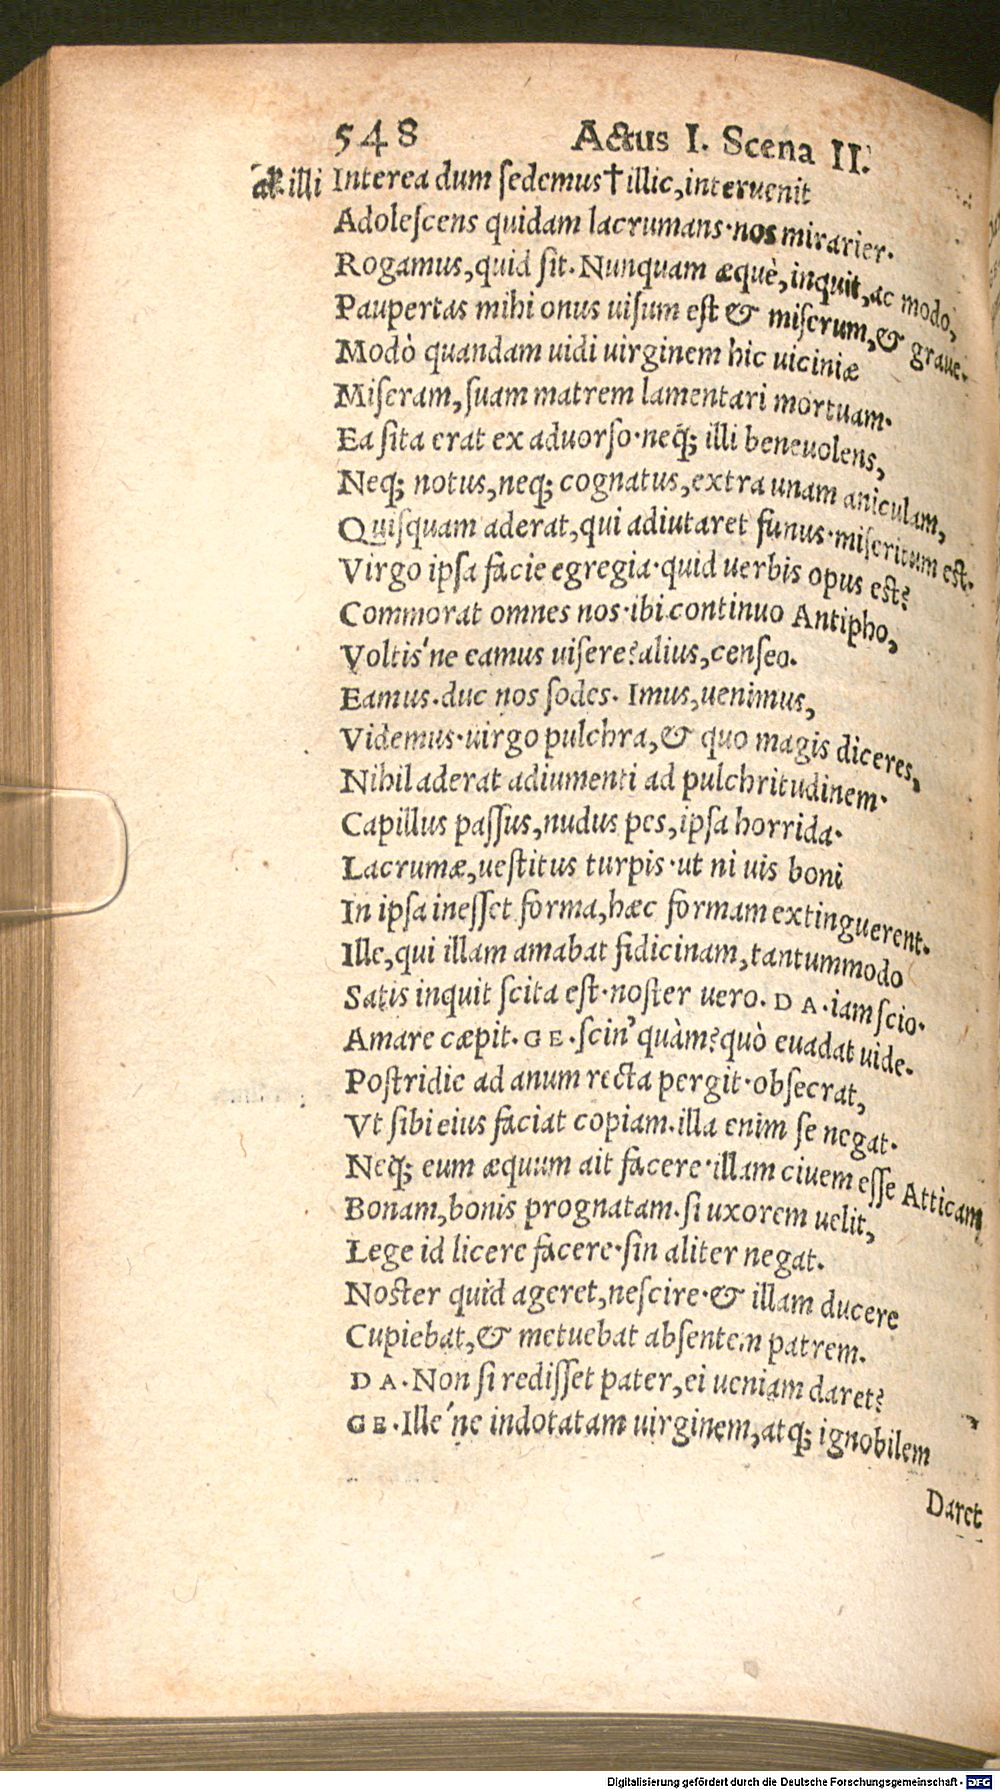 548 Actus I. Scena II.
al. illi Interea dum ſedemus† illic, interuenit
Adoleſcens quidam lacrumans· nos mirarier.
Rogamus, quid ſit. Nunquam æquè, inquit, ac modo,
Paupertas mihi onus uiſum eſt & miſerum, & graue.
Modò quandam uidi uirginem hic uiciniæ
Miſeram, ſuam matrem lamentari mortuam.
Ea ſita erat ex aduorſo· neq; illi beneuolens,
Neq; notus, neq; cognatus, extra unam aniculam,
Quiſquam aderat, qui adiutaret funus· miſeritum eſt.
Virgo ipſa facie egregia· quid uerbis opus eſt?
Commorat omnes nos· ibi continuo Antipho,
Voltis'ne eamus uiſere? alius, cenſeo.
Eamus. duc nos ſodes. Imus, uenimus,
Videmus· uirgo pulchra, & quo magis diceres,
Nihil aderat adiumenti ad pulchritudinem.
Capillus paſſus, nudus pes, ipſa horrida·
Lacrumæ, ueſtitus turpis· ut ni uis boni
In ipſa ineſſet forma, hæc formam extinguerent.
Ille, qui illam amabat fidicinam, tantummodo
Satis inquit ſcita eſt· noſter uero. DA. iam ſcio.
Amare cæpit. GE. ſcin' quàm? quò euadat uide.
Poſtridie ad anum recta pergit· obſecrat,
Vt ſibi eius faciat copiam. illa enim ſe negat.
Neq; eum æquum ait facere· illam ciuem eſſe Atticam
Bonam, bonis prognatam. ſi uxorem uelit,
Lege id licere facere· ſin aliter negat.
Noſter quid ageret, neſcire· & illam ducere
Cupiebat, & metuebat abſentem patrem.
DA. Non ſi rediſſet pater, ei ueniam daret?
GE. Ille'ne indotatam uirginem, atq; ignobilem
Daret
Digitalisierung gefördert durch die Deutsche Forschungsgemeinschaft - DFG